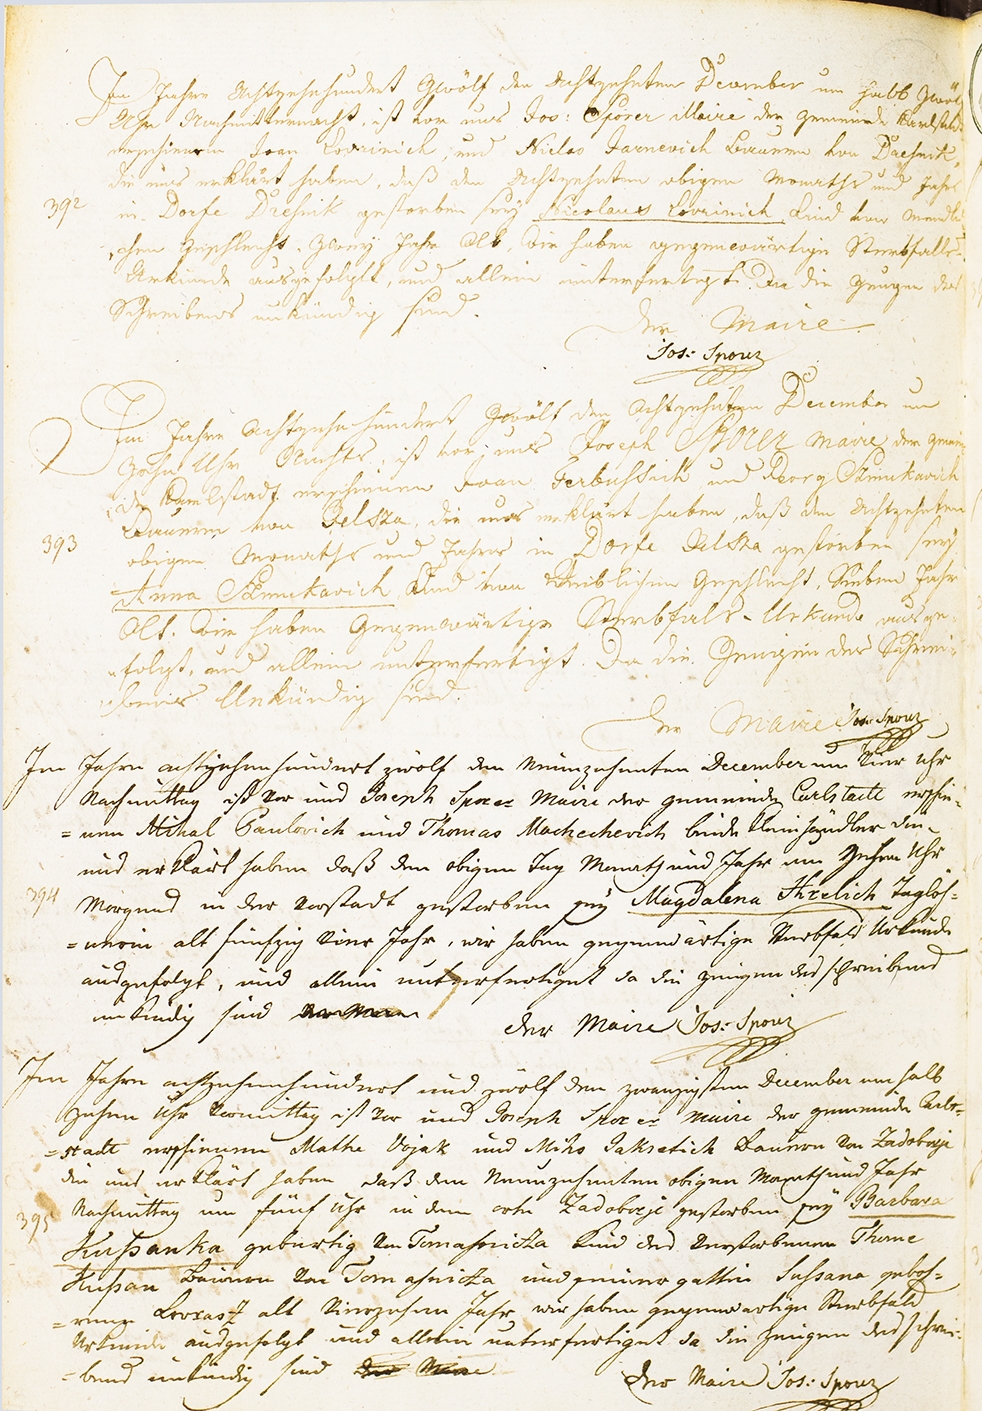 Im Jahre Achtzehnhundert Zwölf den Achtzehnten December um halb Zwölf
Uhr Nachmitternacht, ist vor uns Jos: Sporer Maire der Gemeinde Karlstadt
erschienen Ivan Lovrinich, und Niclas Jarnevich Bauern von Dresnik,
die uns erklärt haben, daß den Achtzehnten obigen Monaths und Jahrs
392
in Dorfe Dresnik gestorben sey Nicolaus Lovrinich, Kind von Mendli-
chen Geschlecht, Zwey Jahr Alt, Wir haben gegenwärtige Sterbfalls-
Urkunde ausgefolgt, und allein unterfertigt. Da die Zeugen des
Schreibens unkündig sind.
der Maire
Jos: Sporer
Im Jahre Achtzehnhundert Zwölf den Achtzehnten December um
Zehn Uhr Nachts, ist vor uns Joseph Sporer Maire der Gemein-
de Karlstadt erschienen Ivan Ferbussich und Georg Skmukavich
Bauern von Jelska, die uns erklärt haben, daß den Achtzehnten
393
obigen Monaths und Jahrs in Dorfe Jelska gestorben sey
Anna Skmukavich, Kind von Weiblichen Geschlecht, Sieben Jahr
Alt. Wir haben Gegenwärtige Sterbfals-Urkunde ausge-
folgt, und allein unterfertigt. Da die Zeugen des Schrei-
bens Unkündig sind.
der Maire Jos: Sporer
Im Jahre achtzehnhundert zwölf den Neunzehnten December um Vier Uhr
Nachmittag ist vor uns Joseph Sporer Maire der gemeinde Carlstadt erschie-
= nen Mihal Paulovich und Thomas Machechevich beide Kleinhändler die
uns erklärt haben daß den obigen Tag Monath und Jahr um Zehen Uhr
394
Morgens in der Vorstadt gestorben sey Magdalena Hrelich Taglöh-
= nerin alt fünfzig Vier Jahr, wir haben gegenwärtige Sterbfals Urkunde
ausgefolgt, und allein unterfertiget da die zeugen des schreibens
unkindig sind der Maire
der Maire Jos: Sporer
Im Jahre achtzehnhundert und zwölf den zwanzigsten December um halb
zehen Uhr Vormittag ist vor uns Joseph Sporer Maire der gemeinde Carls-
= stadt erschienen Mathe Vojak und Miko Jaksetich Bauern von Zadobarje
die uns erklärt haben daß den Neunzehnten obigen Monath und Jahr
395
Nachmittag um fünf Uhr in dem orte Zadobarje gestorben sey Barbara
Hussanka geburtig von Tomasnicka Kind des verstorbenen Thome
Hussan Bauern von Tomasnicka und seiner gattin Sussana geboh-
= renen alt Vierzehen Jahr, wir haben gegenwartige Sterbfals
Urkunde ausgefolgt und allein unterfertiget da die zeugen des schrei-
= bens unkindig sind der Maire
der Maire Jos: Sporer